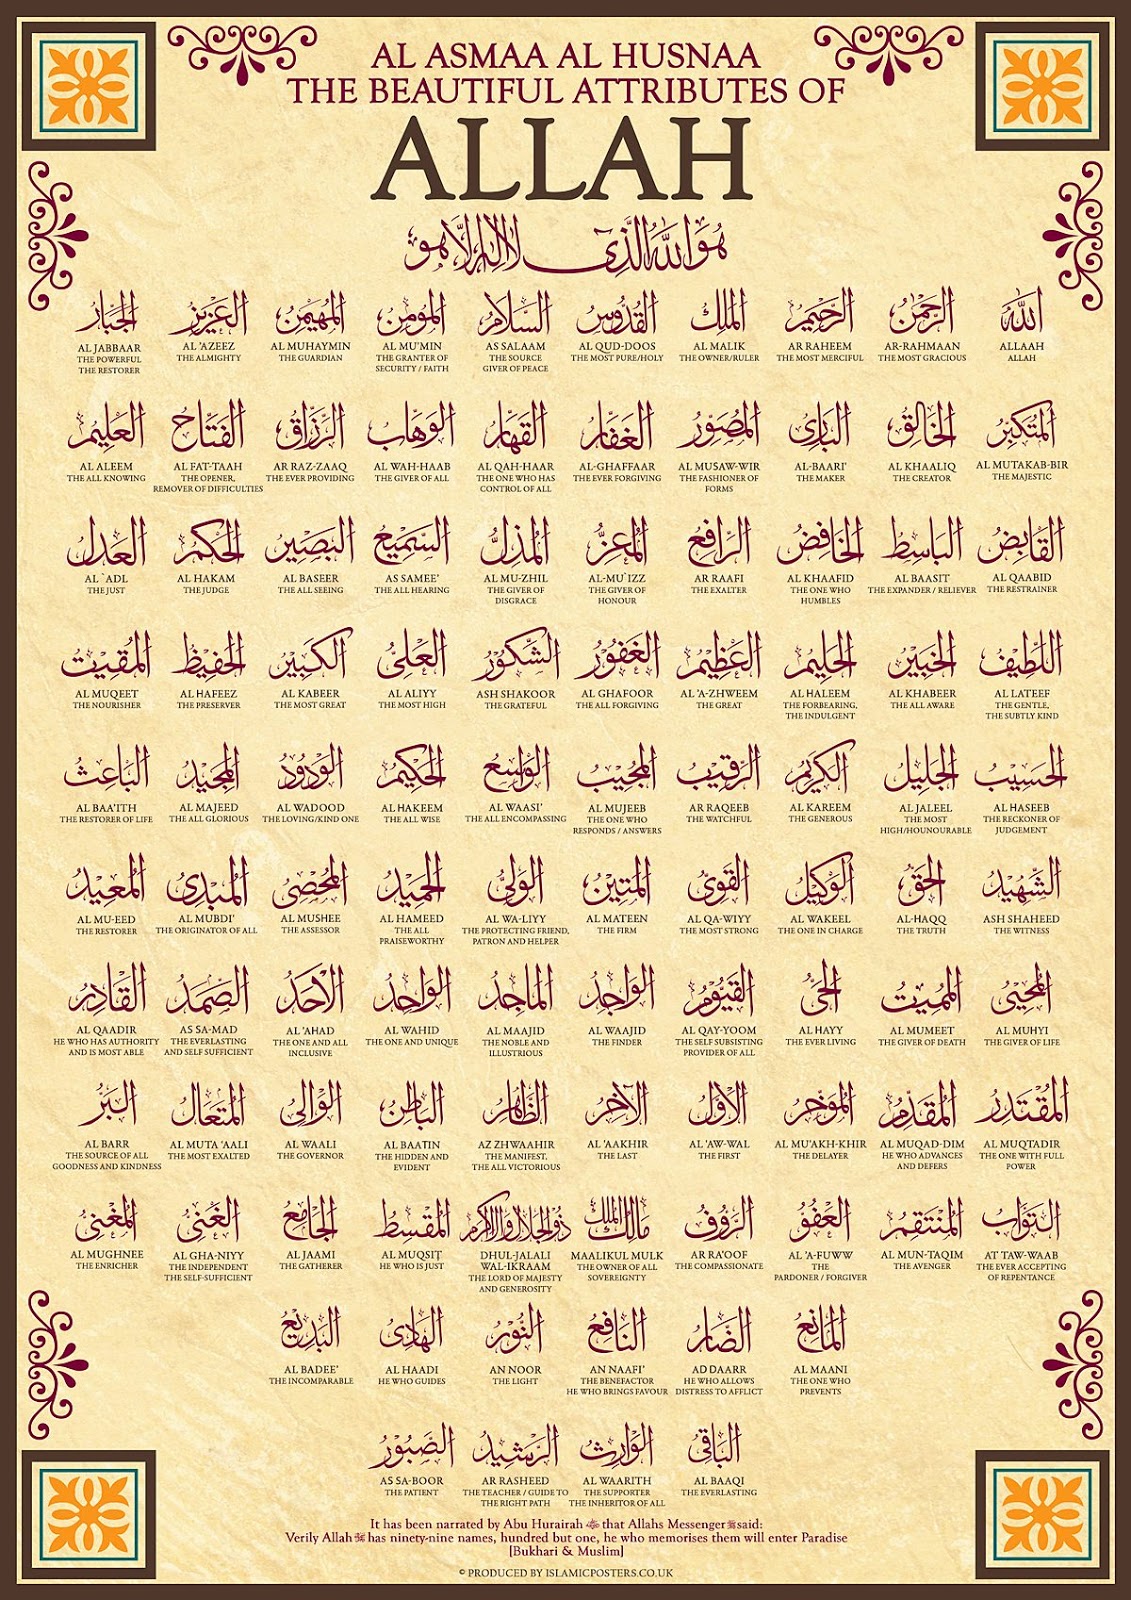 AL ASMAA AL HUSNAA
THE BEAUTIFUL ATTRIBUTES OF
ALLAH
هُوَ اللهُ الَّذِي لَا إِلَهَ إِلَّا هُوَ
الله
ALLAAH
ALLAH
الرحمن
AR-RAHMAAN
THE MOST GRACIOUS
الرحيم
AR RAHEEM
THE MOST MERCIFUL
الملك
AL MALIK
THE OWNER/RULER
القدوس
AL QUD-DOOS
THE MOST PURE/HOLY
السلام
AS SALAAM
THE SOURCE
GIVER OF PEACE
المؤمن
AL MU'MIN
THE GRANTER OF
SECURITY / FAITH
المهيمن
AL MUHAYMIN
THE GUARDIAN
العزيز
AL 'AZEEZ
THE ALMIGHTY
الجبار
AL JABBAAR
THE POWERFUL
THE RESTORER
المتكبر
AL MUTAKAB-BIR
THE MAJESTIC
الخالق
AL KHAALIQ
THE CREATOR
البارئ
AL-BAARI'
THE MAKER
المصور
AL MUSAW-WIR
THE FASHIONER OF
FORMS
الغفار
AL-GHAFFAAR
THE EVER FORGIVING
القهار
AL QAH-HAAR
THE ONE WHO HAS
CONTROL OF ALL
الوهاب
AL WAH-HAAB
THE GIVER OF ALL
الرزاق
AR RAZ-ZAAQ
THE EVER PROVIDING
الفتاح
AL FAT-TAAH
THE OPENER,
REMOVER OF DIFFICULTIES
العليم
AL ALEEM
THE ALL KNOWING
القابض
AL QAABID
THE RESTRAINER
الباسط
AL BAASIT
THE EXPANDER / RELIEVER
الخافض
AL KHAAFID
THE ONE WHO
HUMBLES
الرافع
AR RAAFI
THE EXALTER
المعز
AL-MU`IZZ
THE GIVER OF
HONOUR
المذل
AL MU-ZHIL
THE GIVER OF
DISGRACE
السميع
AS SAMEE'
THE ALL HEARING
البصير
AL BASEER
THE ALL SEEING
الحكم
AL HAKAM
THE JUDGE
العدل
AL `ADL
THE JUST
اللطيف
AL LATEEF
THE GENTLE,
THE SUBTLY KIND
الخبير
AL KHABEER
THE ALL AWARE
الحليم
AL HALEEM
THE FORBEARING,
THE INDULGENT
العظيم
AL 'A-ZHWEEM
THE GREAT
الغفور
AL GHAFOOR
THE ALL FORGIVING
الشكور
ASH SHAKOOR
THE GRATEFUL
العلي
AL ALIYY
THE MOST HIGH
الكبير
AL KABEER
THE MOST GREAT
الحفيظ
AL HAFEEZ
THE PRESERVER
المقيت
AL MUQEET
THE NOURISHER
الحسيب
AL HASEEB
THE RECKONER OF
JUDGEMENT
الجليل
AL JALEEL
THE MOST
HIGH/HOUNOURABLE
الكريم
AL KAREEM
THE GENEROUS
الرقيب
AR RAQEEB
THE WATCHFUL
المجيب
AL MUJEEB
THE ONE WHO
RESPONDS / ANSWERS
الواسع
AL WAASI'
THE ALL ENCOMPASSING
الحكيم
AL HAKEEM
THE ALL WISE
الودود
AL WADOOD
THE LOVING/KIND ONE
المجيد
AL MAJEED
THE ALL GLORIOUS
الباعث
AL BAA'ITH
THE RESTORER OF LIFE
الشهيد
ASH SHAHEED
THE WITNESS
الحق
AL-HAQQ
THE TRUTH
الوكيل
AL WAKEEL
THE ONE IN CHARGE
القوي
AL QA-WIYY
THE MOST STRONG
المتين
AL MATEEN
THE FIRM
الولي
AL WA-LIYY
THE PROTECTING FRIEND,
PATRON AND HELPER
الحميد
AL HAMEED
THE ALL
PRAISEWORTHY
المحصي
AL MUSHEE
THE ASSESSOR
المبدئ
AL MUBDI'
THE ORIGINATOR OF ALL
المعيد
AL MU-EED
THE RESTORER
المحيي
AL MUHYI
THE GIVER OF LIFE
المميت
AL MUMEET
THE GIVER OF DEATH
الحي
AL HAYY
THE EVER LIVING
القيوم
AL QAY-YOOM
THE SELF SUBSISTING
PROVIDER OF ALL
الواجد
AL WAAJID
THE FINDER
الماجد
AL MAAJID
THE NOBLE AND
ILLUSTRIOUS
الواحد
AL WAHID
THE ONE AND UNIQUE
الأحد
AL 'AHAD
THE ONE AND ALL
INCLUSIVE
الصمد
AS SA-MAD
THE EVERLASTING
AND SELF SUFFICIENT
القادر
AL QAADIR
HE WHO HAS AUTHORITY
AND IS MOST ABLE
المقتدر
AL MUQTADIR
THE ONE WITH FULL
POWER
المقدم
AL MUQAD-DIM
HE WHO ADVANCES
AND DEFERS
المؤخر
AL MU'AKH-KHIR
THE DELAYER
الأول
AL 'AW-WAL
THE FIRST
الآخر
AL 'AAKHIR
THE LAST
الظاهر
AZ ZHWAAHIR
THE MANIFEST,
THE ALL VICTORIOUS
الباطن
AL BAATIN
THE HIDDEN AND
EVIDENT
الوالي
AL WAALI
THE GOVERNOR
المتعال
AL MUTA 'AALI
THE MOST EXALTED
البر
AL BARR
THE SOURCE OF ALL
GOODNESS AND KINDNESS
التواب
AT TAW-WAAB
THE EVER ACCEPTING
OF REPENTANCE
المنتقم
AL MUN-TAQIM
THE AVENGER
العفو
AL 'A-FUWW
THE
PARDONER / FORGIVER
الرؤوف
AR RA'OOF
THE COMPASSIONATE
مالك الملك
MAALIKUL MULK
THE OWNER OF ALL
SOVEREIGNTY
ذو الجلال والإكرام
DHUL-JALALI
WAL-IKRAAM
THE LORD OF MAJESTY
AND GENEROSITY
المقسط
AL MUQSIT
HE WHO IS JUST
الجامع
AL JAAMI
THE GATHERER
الغني
AL GHA-NIYY
THE INDEPENDENT
THE SELF-SUFFICIENT
المغني
AL MUGHNEE
THE ENRICHER
المانع
AL MAANI
THE ONE WHO
PREVENTS
الضار
AD DAARR
HE WHO ALLOWS
DISTRESS TO AFFLICT
النافع
AN NAAFI'
THE BENEFACTOR
HE WHO BRINGS FAVOUR
النور
AN NOOR
THE LIGHT
الهادي
AL HAADI
HE WHO GUIDES
البديع
AL BADEE'
THE INCOMPARABLE
الباقي
AL BAAQI
THE EVERLASTING
الوارث
AL WAARITH
THE SUPPORTER
THE INHERITOR OF ALL
الرشيد
AR RASHEED
THE TEACHER / GUIDE TO
THE RIGHT PATH
الصبور
AS SA-BOOR
THE PATIENT
It has been narrated by Abu Hurairah that Allahs Messenger ﷺ said:
Verily Allah has ninety-nine names, hundred but one, he who memorises them will enter Paradise
[Bukhari & Muslim]
© PRODUCED BY ISLAMICPOSTERS.CO.UK